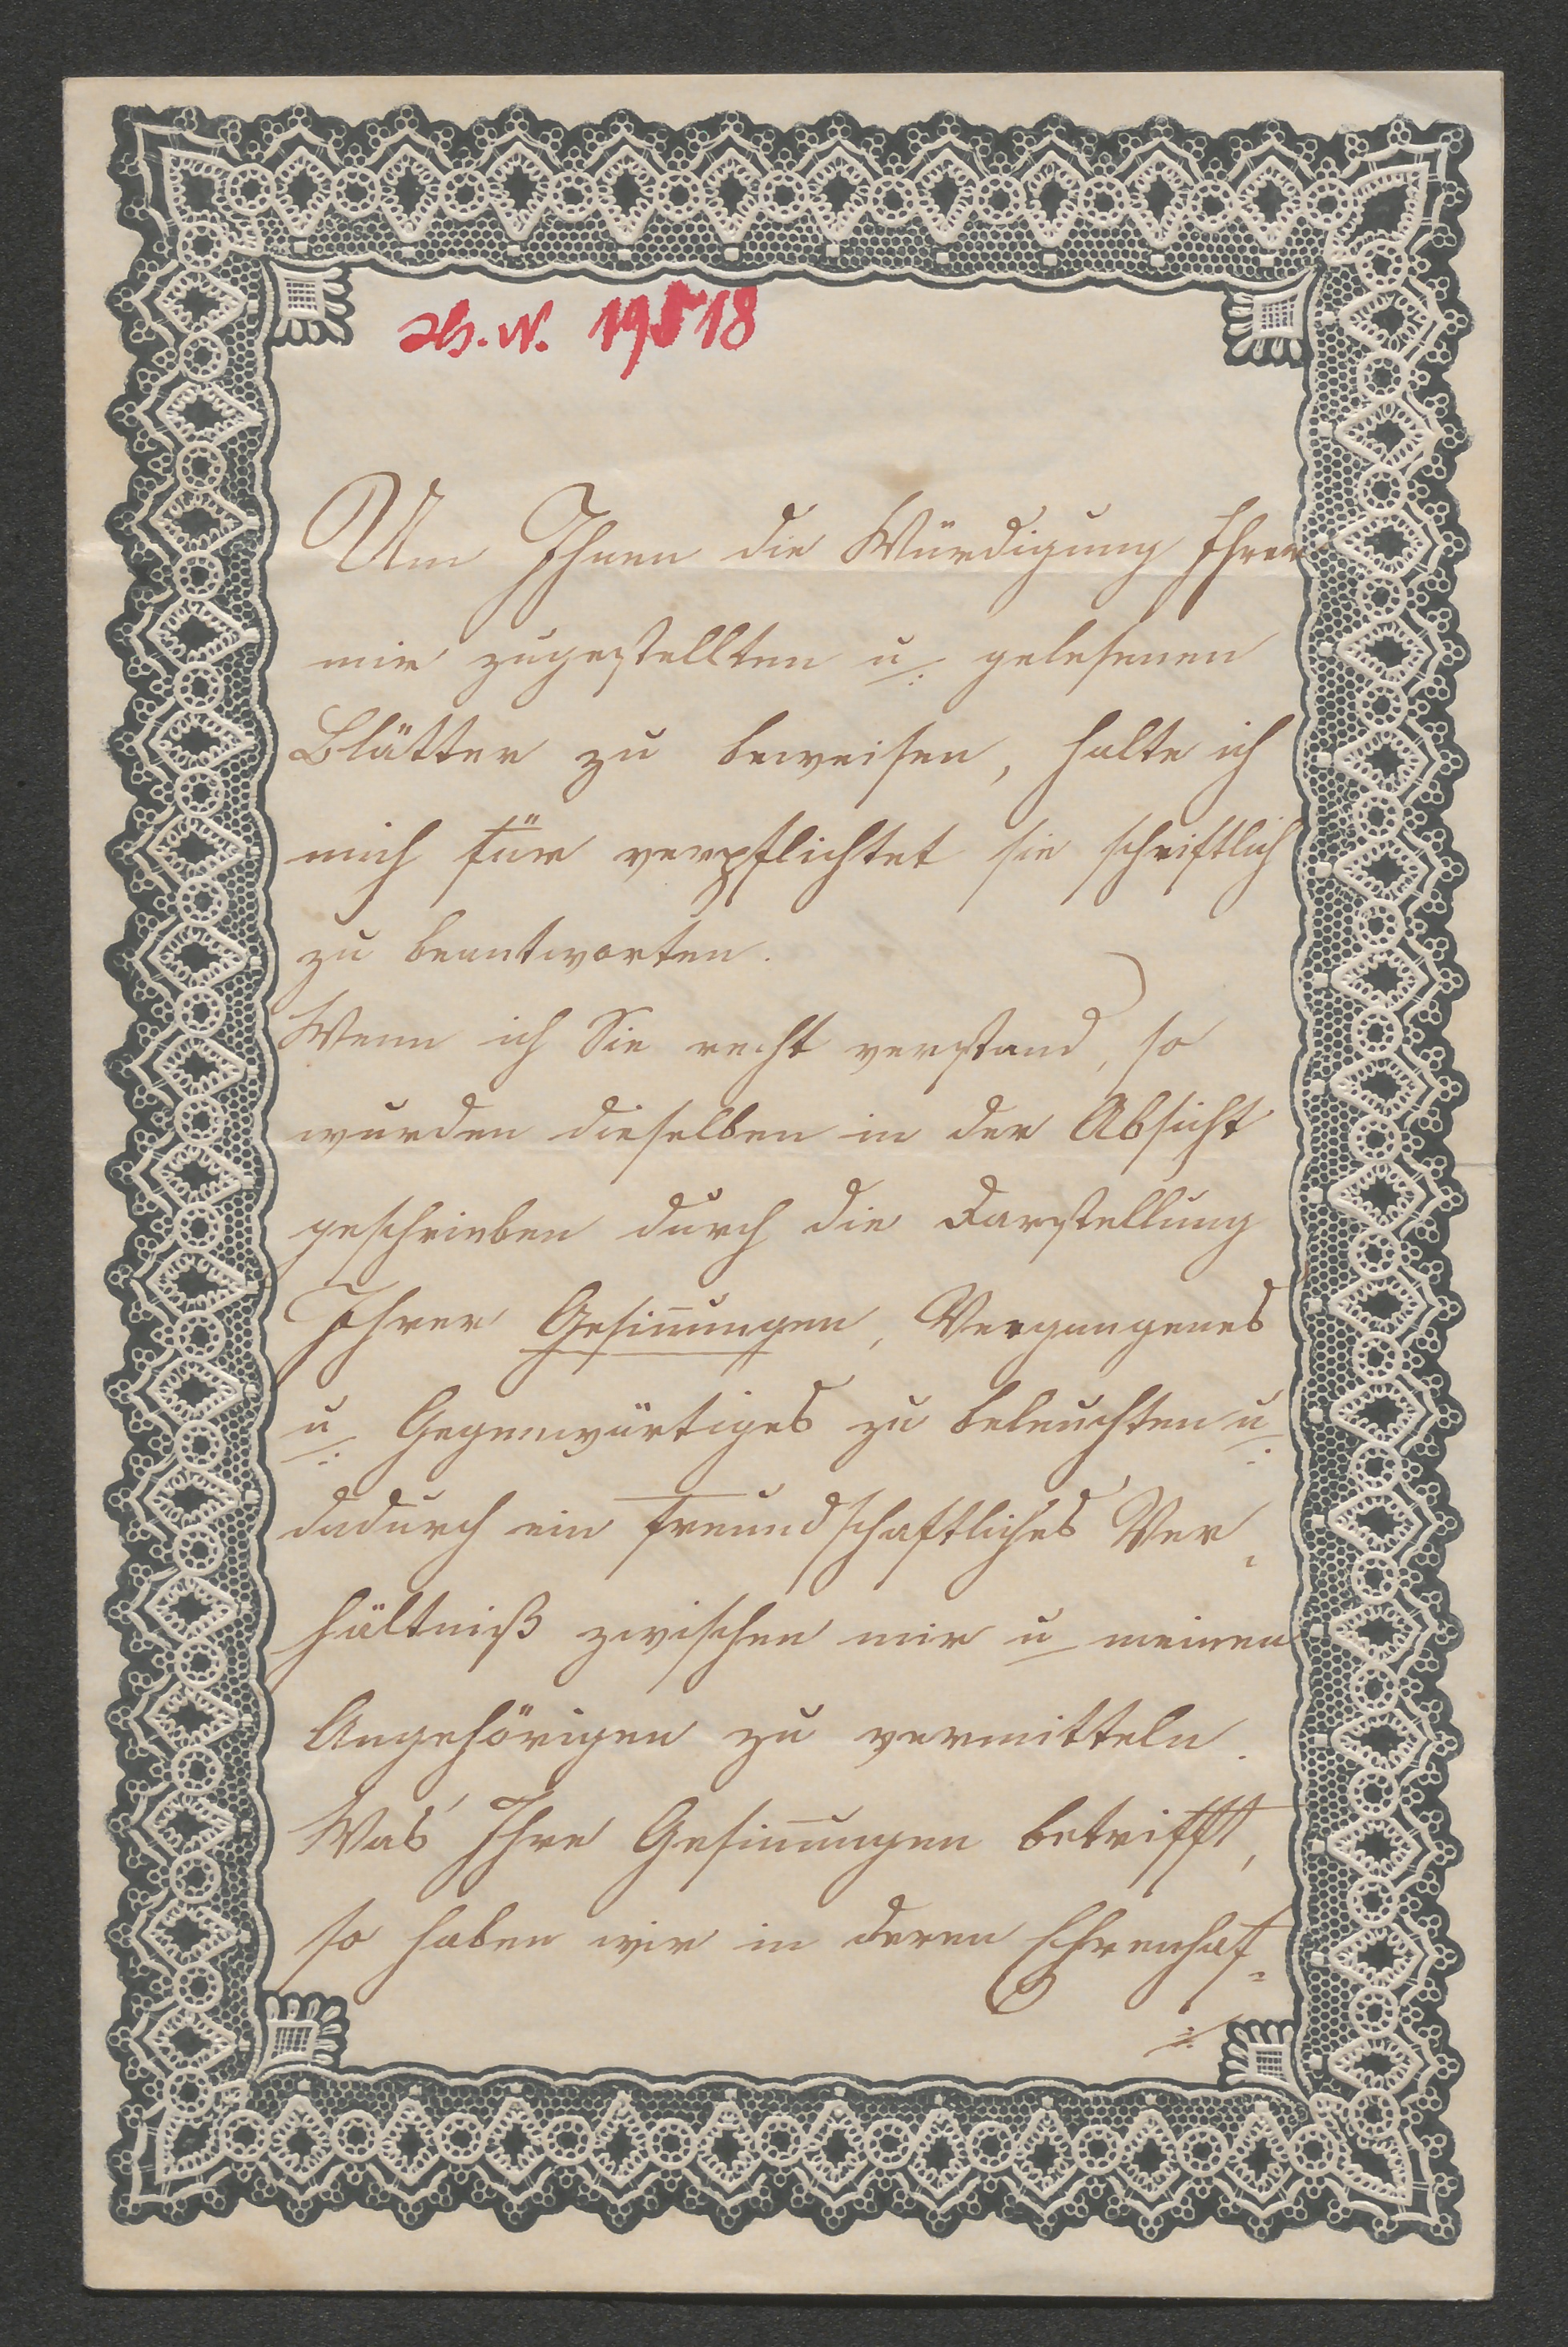 19518
Um Ihnen die Würdigung Ihrer
mir zugestellten u. gelesenen
Blätter zu beweisen, halte ich
mich für verpflichtet sie schriftlich
zu beantworten.
Wenn ich Sie recht verstand, so
wurden dieselben in der Absicht
geschrieben durch die Darstellung
Ihrer Gesinnungen, Vergangenes
u. Gegenwärtiges zu beleuchten u.
dadurch ein freundschaftliches Ver-
hältniß zwischen mir u meinen
Angehörigen zu vermitteln.
Was Ihre Gesinnungen betrifft,
so haben wir in deren Ehrenhaf-